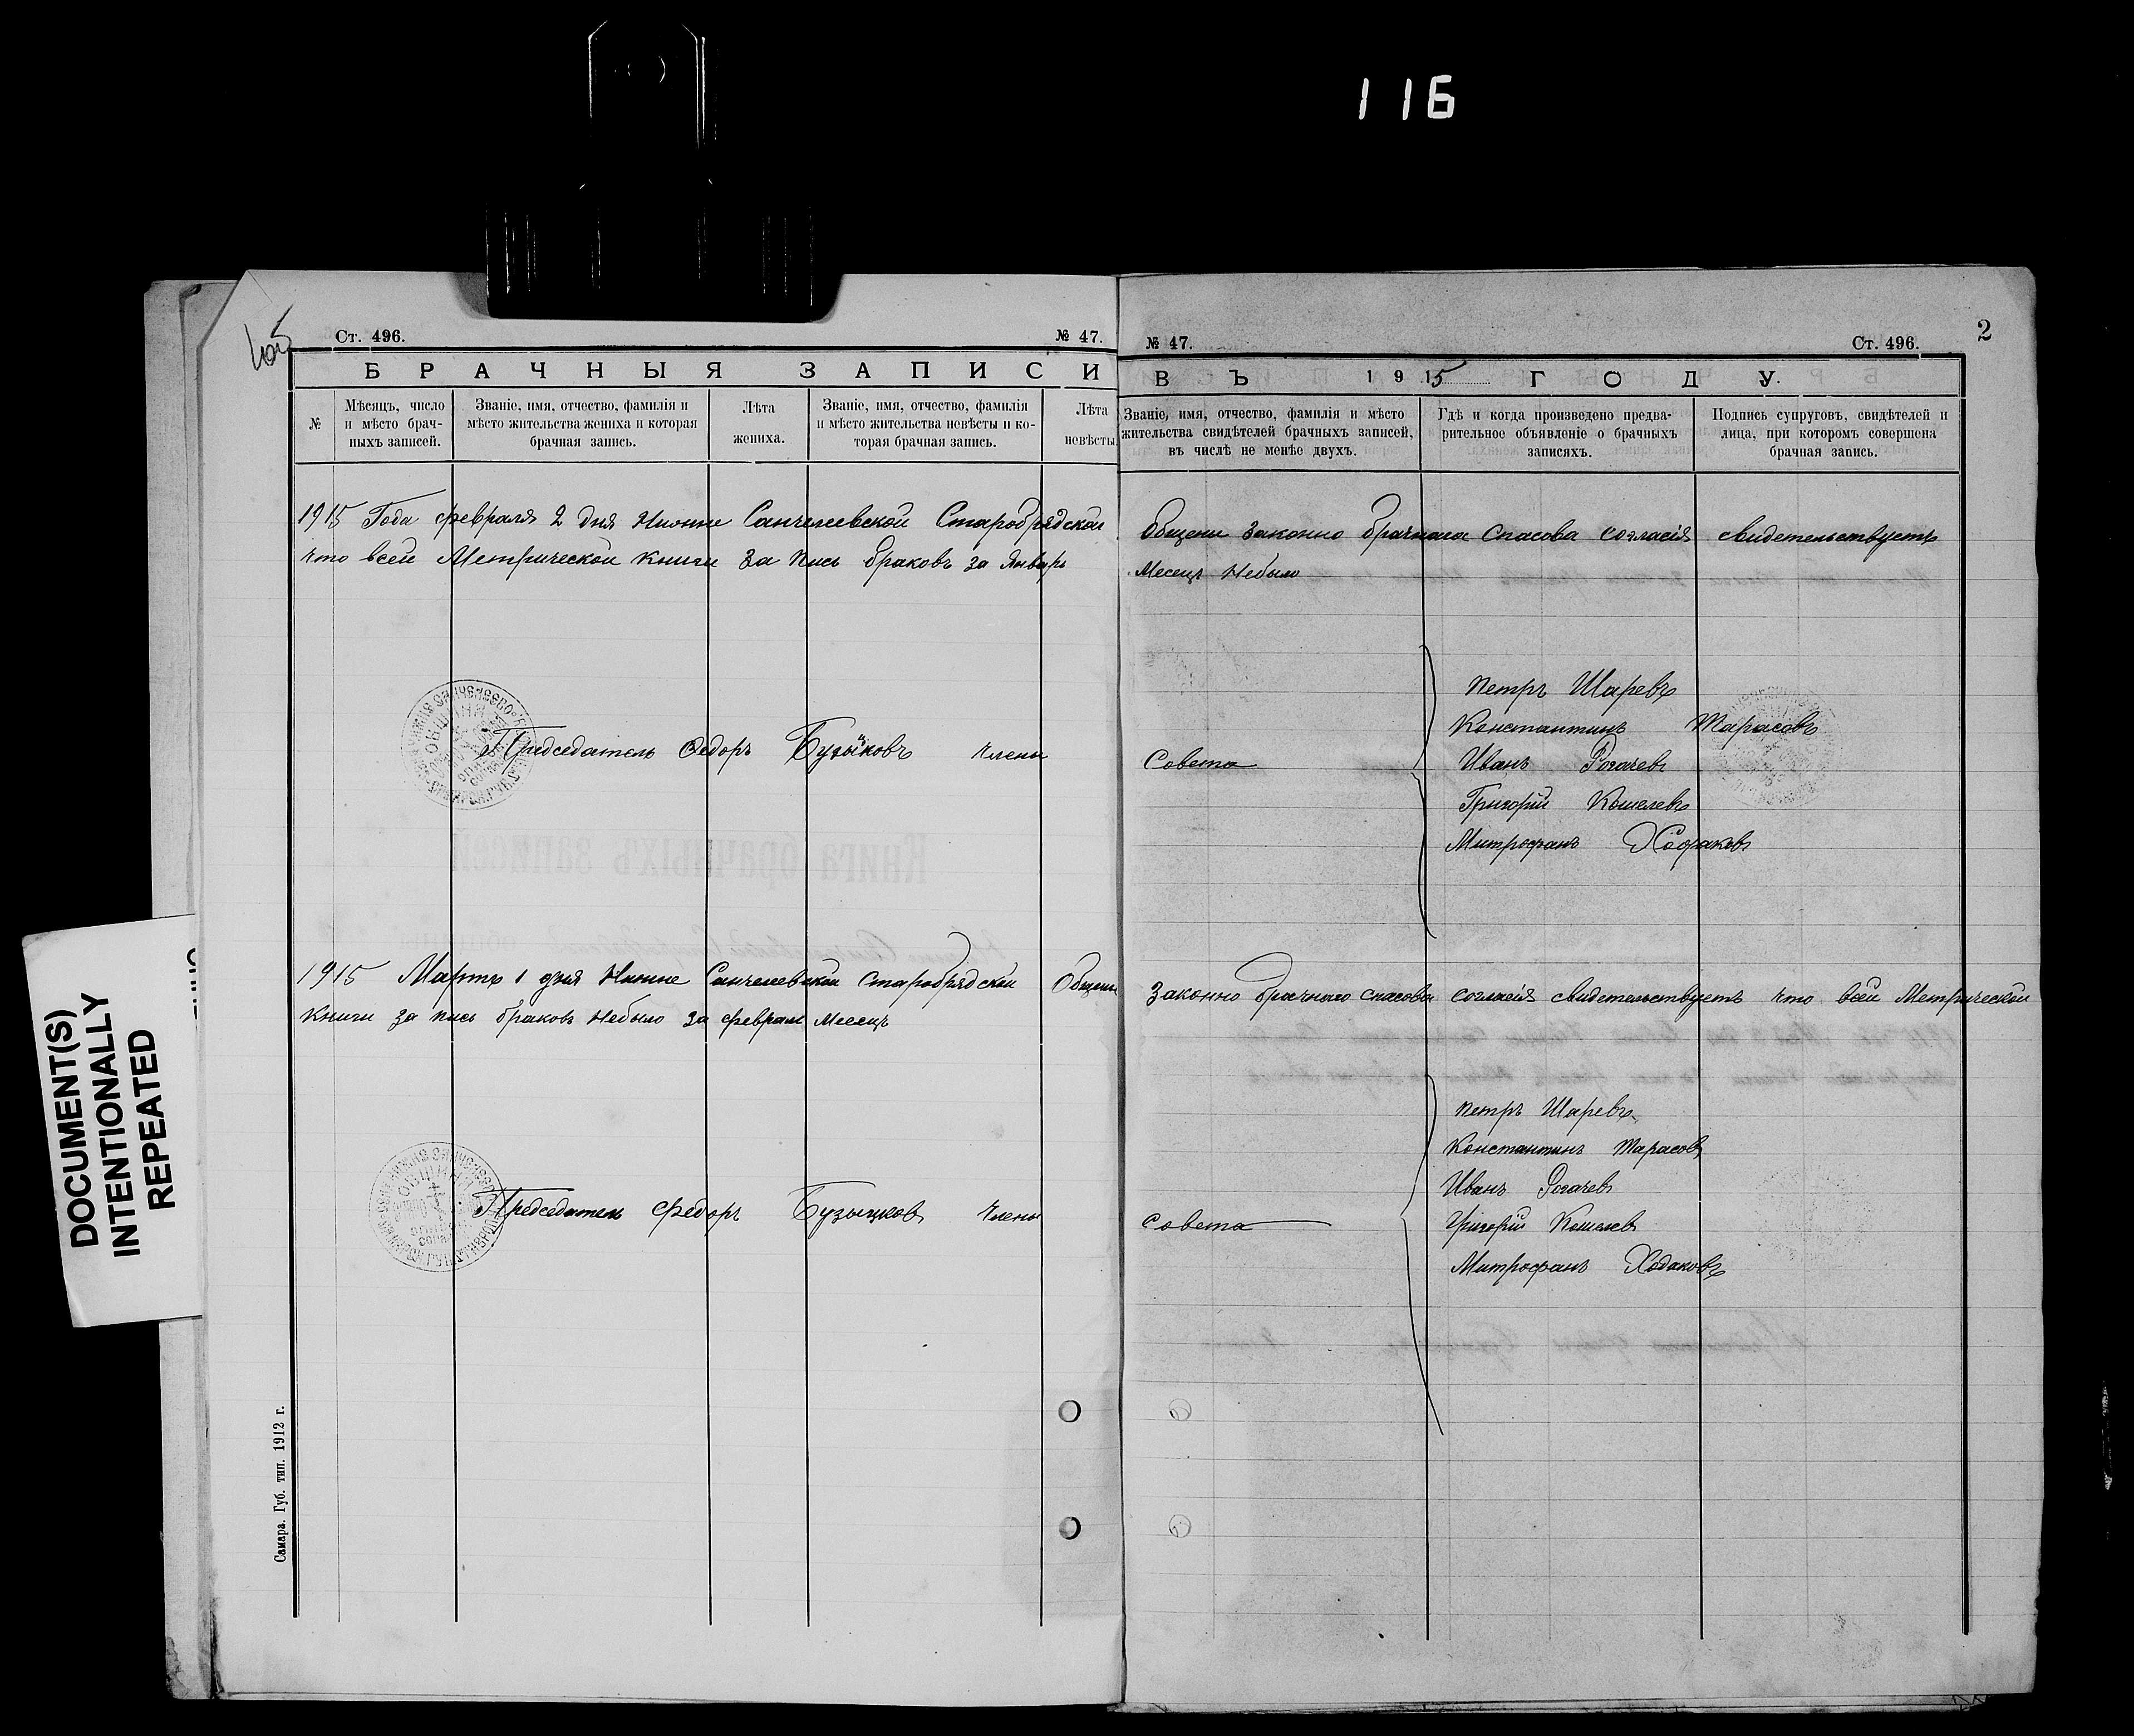 116
Ст. 496.
№ 47.
БРАЧНЫЯ ЗАПИСИ
№
Мѣсяцъ, число
и мѣсто брач-
ныхъ записей.
Званіе, имя, отчество, фамилія и
мѣсто жительства жениха и которая
брачная запись.
Лѣта
жениха.
Званіе, имя, отчество, фамилія
и мѣсто жительства невѣсты и ко-
торая брачная запись.
Лѣта
невѣсты.
№ 47.
Ст. 496.
2
ВЪ 1915 ГОДУ.
Званіе, имя, отчество, фамилія и мѣсто
жительства свидѣтелей брачныхъ записей,
въ числѣ не менѣе двухъ.
Гдѣ и когда произведено предва-
рительное объявленіе о брачныхъ
записяхъ.
Подпись супруговъ, свидѣтелей и
лица, при которомъ совершена
брачная запись.
1915 Года февраля 2 дня Санчелеевской Старобрядской Общены Законно брачнаго Спасова согласія свидетельствуетъ
что всеи Метрической книги За пись браковъ за Январь Месецъ Небыло
Председатель Федоръ Бузыковъ члены Совета
Петръ Шаревъ
Константинъ Тарасовъ
Иванъ Рогачевъ
Григорій Кошелевъ
Митрофанъ
1915 Мартъ 1 дня Санчелеевской Старобрядской Общены Законно брачнаго спасова согласія свидетельствуетъ что всеи Метрической
книги за пись браковъ Небыло за феврал Месецъ
Председатель Федоръ члены Совета
Петръ Шаревъ
Константинъ Тарасовъ
Иванъ Рогачевъ
Григорій Кошелевъ
Митрофанъ Ходаковъ
Самара. Губ. тип. 1912 г.
DOCUMENT(S)
INTENTIONALLY
REPEATED